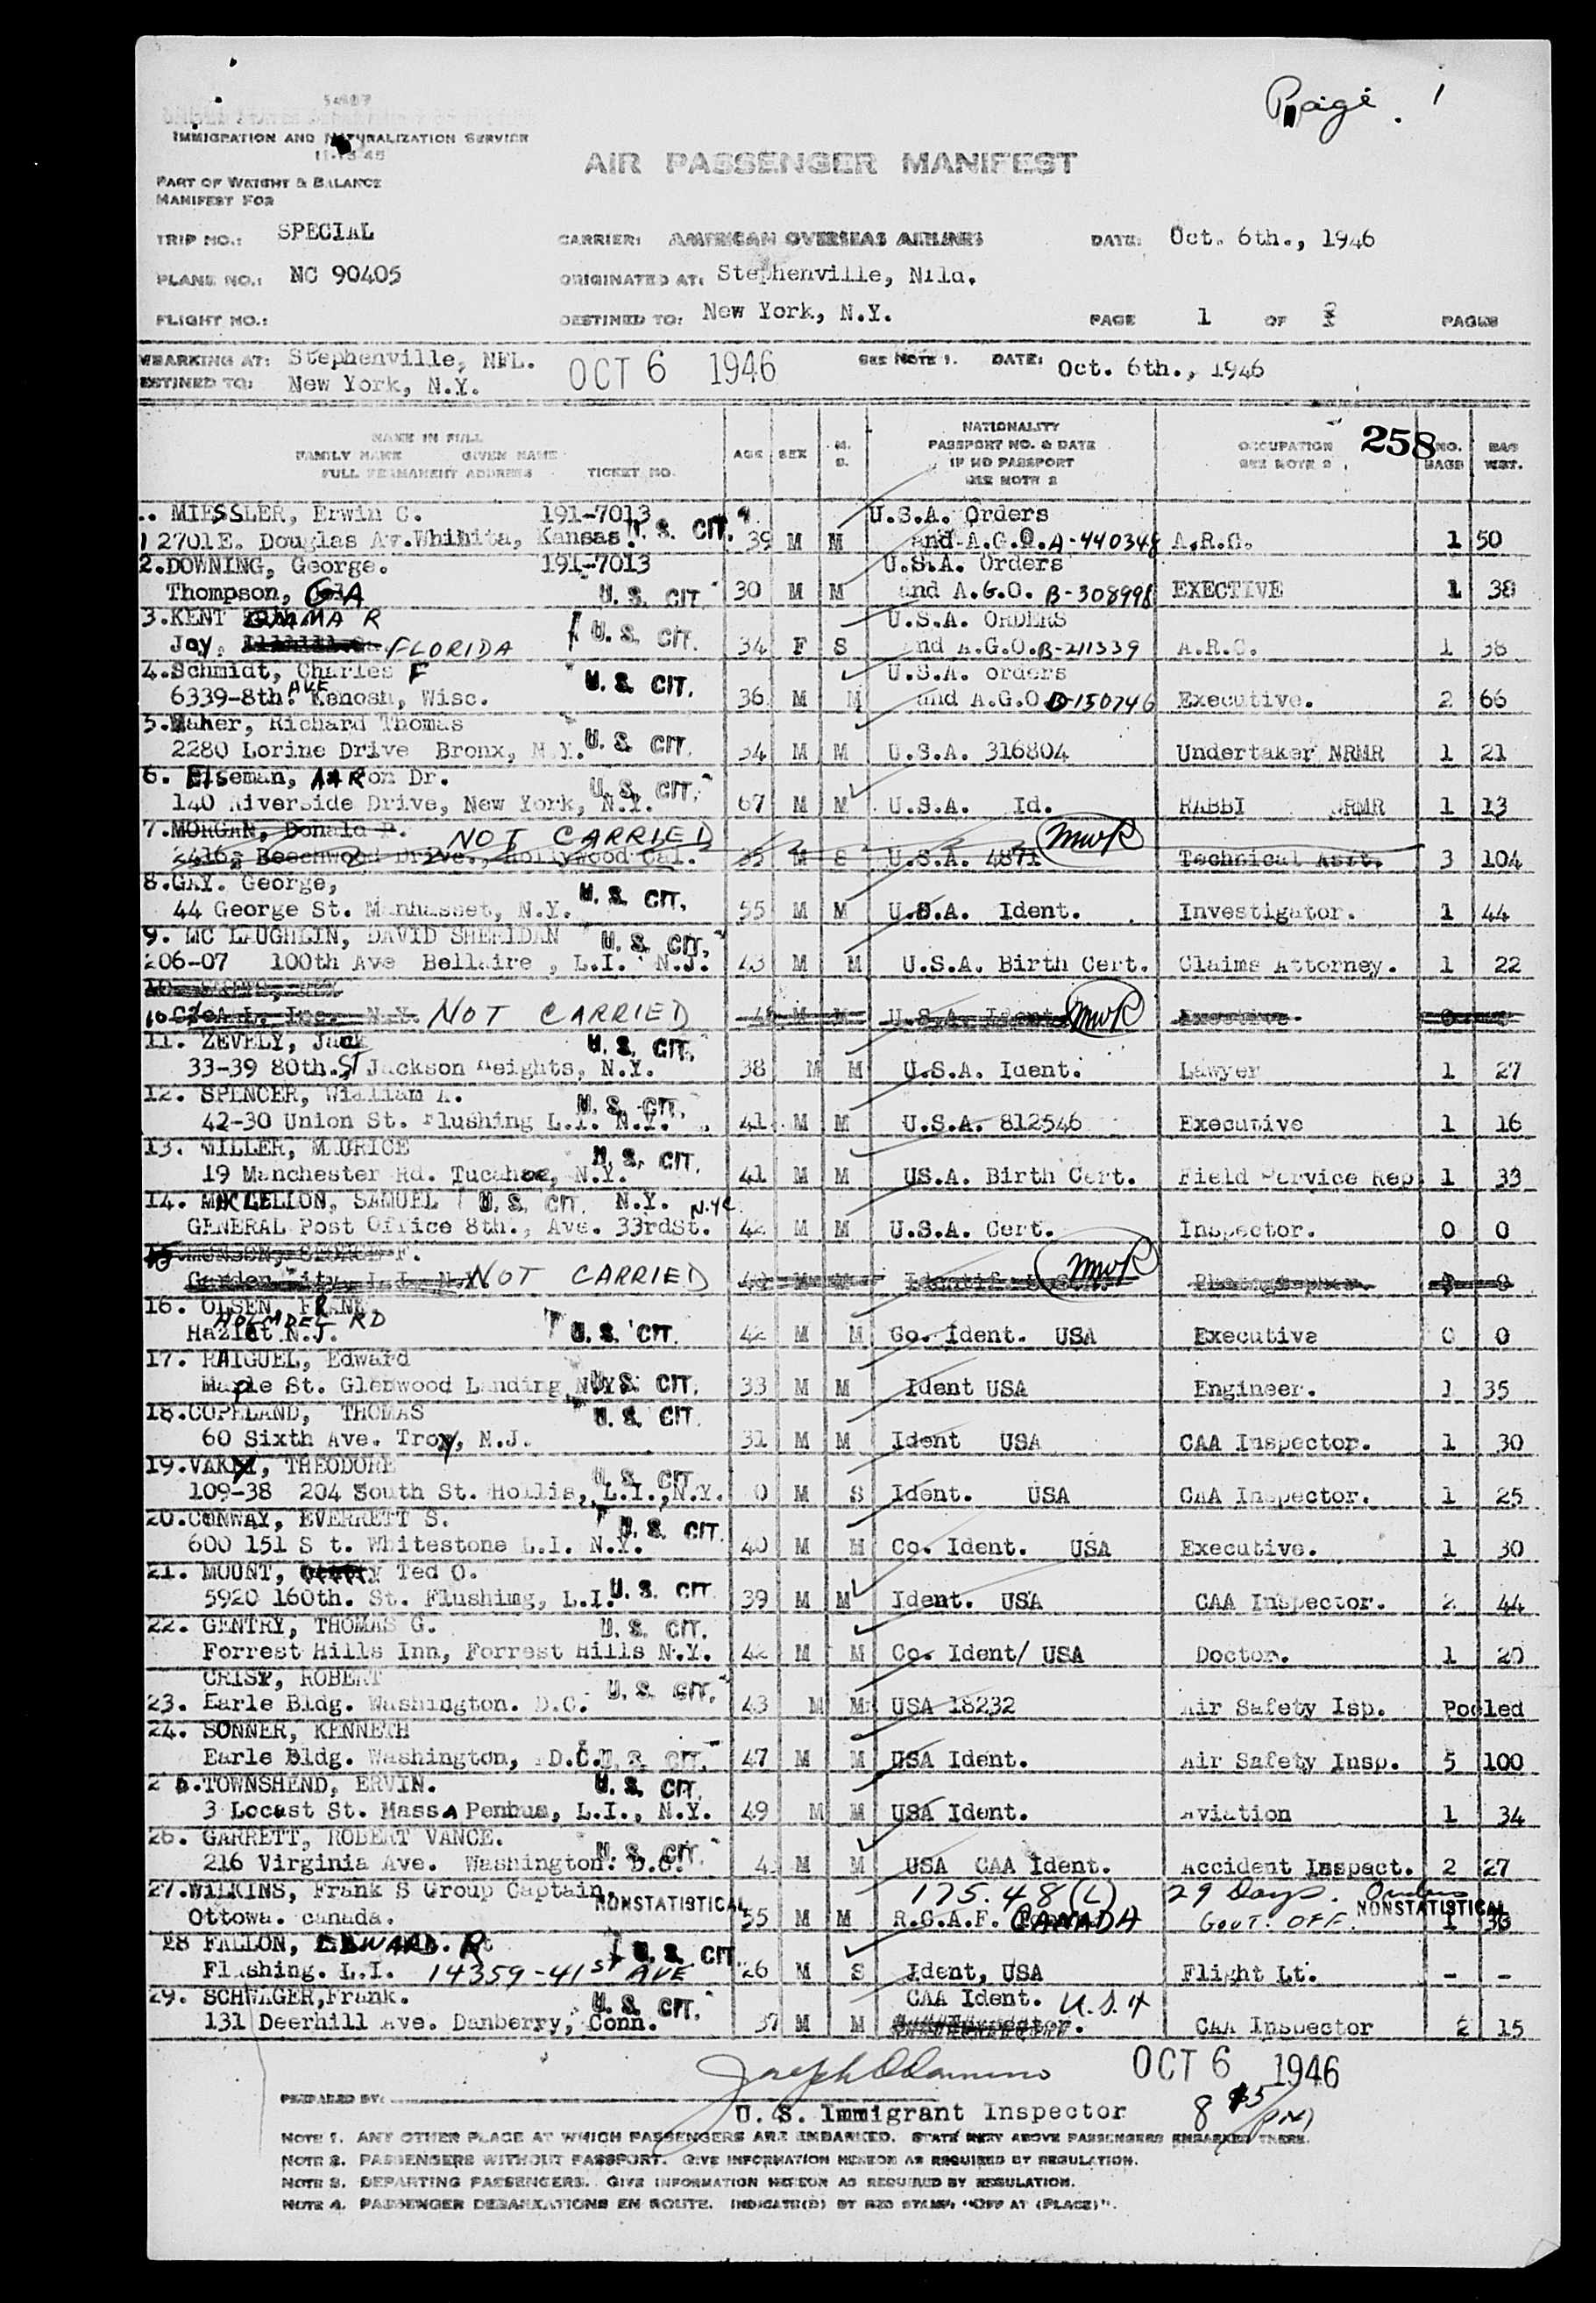 Page. 1
IMMIGRATION AND NATURALIZATION SERVICE
11-15-45
AIR PASSENGER MANIFEST
PART OF WEIGHT & BALANCE
MANIFEST FOR
TRIP NO.: SPECIAL CARRIER: AMERICAN OVERSEAS AIRLINES DATE: Oct. 6th., 1946
PLANE NO.: NC 90405 ORIGINATED AT: Stephenville, Nfld.
FLIGHT NO.: DESTINED TO: New York, N.Y. PAGE 1 OF PAGES
MBARKING AT: Stephenville, NFL. OCT 6 1946 SEE NOTE 1. DATE: Oct. 6th., 1946
ESTINED TO: New York, N.Y.
NAME IN FULL NATIONALITY
FAMILY NAME GIVEN NAME AGE SEX M. S. PASSPORT NO. & DATE OCCUPATION 258 NO. BAG
FULL PERMANENT ADDRESS TICKET NO. IF NO PASSPORT SEE NOTE 2 BAGS WGT.
SEE NOTE 2
MIESSLER, Erwin C. 191-7013 U.S.A. Orders
1 2701E. Douglas Av. Whihita, Kansas. U. S. CIT. 39 M M and A.G.O. A-440348 A.R.C. 1 50
2.DOWNING, George. 191-7013 U.S.A. Orders
Thompson, GA U. S. CIT. 30 M M and A.G.O. B-308998 EXECTIVE 1 38
3.KENT EMMA R U.S.A. ORDERS
Joy, FLORIDA U. S. CIT. 34 F S and A.G.O. B-211339 A.R.C. 1 38
4.Schmidt, Charles F U.S.A. orders
6339-8th. AVE Kenosh, Wisc. U. S. CIT. 36 M M and A.G.O B-150746 Executive. 2 66
5.Maher, Richard Thomas
2280 Lorine Drive Bronx, N.Y. U. S. CIT. 34 M M U.S.A. 316804 Undertaker NRMR 1 21
6. Eiseman, AARon Dr.
140 Riverside Drive, New York, N.Y. U. S. CIT. 67 M M U.S.A. Id. RABBI NRMR 1 13
7.MORGAN, Donald P. NOT CARRIED MWR
2416 Beechwood Drive., Hollywood Cal. 35 M S U.S.A. 4871 Technical Asst. 3 104
8.GAY. George,
44 George St. Manhasset, N.Y. U. S. CIT. 55 M M U.S.A. Ident. Investigator. 1 44
9. MC LAUGHLIN, DAVID SHERIDAN U. S. CIT.
206-07 100th Ave Bellaire , L.I. N.J. 43 M M U.S.A. Birth Cert. Claims Attorney. 1 22
10 NOT CARRIED M M U.S.A. Ident MWR
11. ZEVELY, Jack U. S. CIT.
33-39 80th. ST Jackson Heights, N.Y. 38 M M U.S.A. Ident. Lawyer 1 27
12. SPENCER, William A.
42-30 Union St. Flushing L.I. N.Y. U. S. CIT. 41 M M U.S.A. 812546 Executive 1 16
13. MILLER, MAURICE
19 Manchester Rd. Tucahoe, N.Y. U. S. CIT. 41 M M US.A. Birth Cert. Field Service Rep 1 33
14. SAMUEL U. S. CIT. N.Y. N.Y.C
GENERAL Post Office 8th., Ave. 33rdSt. 42 M M U.S.A. Cert. Inspector. 0 0
15 F. MWR
Garden City, L.I. N.Y. NOT CARRIED M M
16. OLSEN, FRANK,
HOLMDEL RD
Hazlet N.J. U. S. CIT. 42 M M Co. Ident. USA Executive 0 0
17. RAIGUEL, Edward
Maple St. Glenwood Landing N.Y. U. S. CIT. 33 M M Ident USA Engineer. 1 35
18.COPELAND, THOMAS U. S. CIT.
60 Sixth Ave. Troy, N.J. 31 M M Ident USA CAA Inspector. 1 30
19.VAKEY, THEODORE
109-38 204 South St. Hollis, L.I.,N.Y. U. S. CIT. 0 M S Ident. USA CAA Inspector. 1 25
20.CONWAY, EVERRETT S.
600 151 S t. Whitestone L.I. N.Y. U. S. CIT. 40 M M Co. Ident. USA Executive. 1 30
21. MOUNT, Ted O.
5920 160th. St. Flushing, L.I. U. S. CIT. 39 M M Ident. USA CAA Inspector. 2 44
22. GENTRY, THOMAS G. U. S. CIT.
Forrest Hills Inn, Forrest Hills N.Y. 42 M M Co. Ident/ USA Doctor. 1 20
CRISP, ROBERT
23. Earle Bldg. Washington. D.C. U. S. CIT. 43 M M USA 18232 Air Safety Isp. Pooled
24. SONNER, KENNETH
Earle Bldg. Washington, D.C. U. S. CIT. 47 M M USA Ident. Air Safety Insp. 5 100
25.TOWNSHEND, ERVIN. U. S. CIT.
3 Locust St. MassA Penhua, L.I., N.Y. 49 M M USA Ident. Aviation 1 34
26. GARRETT, ROBERT VANCE.
216 Virginia Ave. Washington. D.C. U. S. CIT. 4 M M USA CAA Ident. Accident Inspect. 2 27
27.WILKINS, Frank S Group Captain, 175.48(L) 29 Days. Orders
Ottowa. canada. NONSTATISTICAL 55 M M R.C.A.F. CANADA GOVT. OFF. NONSTATISTICAL 1 36
28 FALLON, EDWARD. R
Flushing. L.I. 14359-41ST AVE U. S. CIT. 26 M S Ident, USA Flight Lt. - -
29. SCHWAGER,Frank. CAA Ident. U.S.A
131 Deerhill Ave. Danberry, Conn. U. S. CIT. 37 M M CAA Inspector 2 15
OCT 6 1946
PREPARED BY:
U. S. Immigrant Inspector 8 PM
NOTE 1. ANY OTHER PLACE AT WHICH PASSENGERS ARE EMBARKED. STATE HERE ABOVE PASSENGERS EMBARKED THERE.
NOTE 2. PASSENGERS WITHOUT PASSPORT. GIVE INFORMATION HEREON AS REQUIRED BY REGULATION.
NOTE 3. DEPARTING PASSENGERS. GIVE INFORMATION HEREON AS REQUIRED BY REGULATION.
NOTE 4. PASSENGER DEBARKATIONS EN ROUTE. INDICATE(D) BY RED STAMP, "OFF AT (PLACE)".